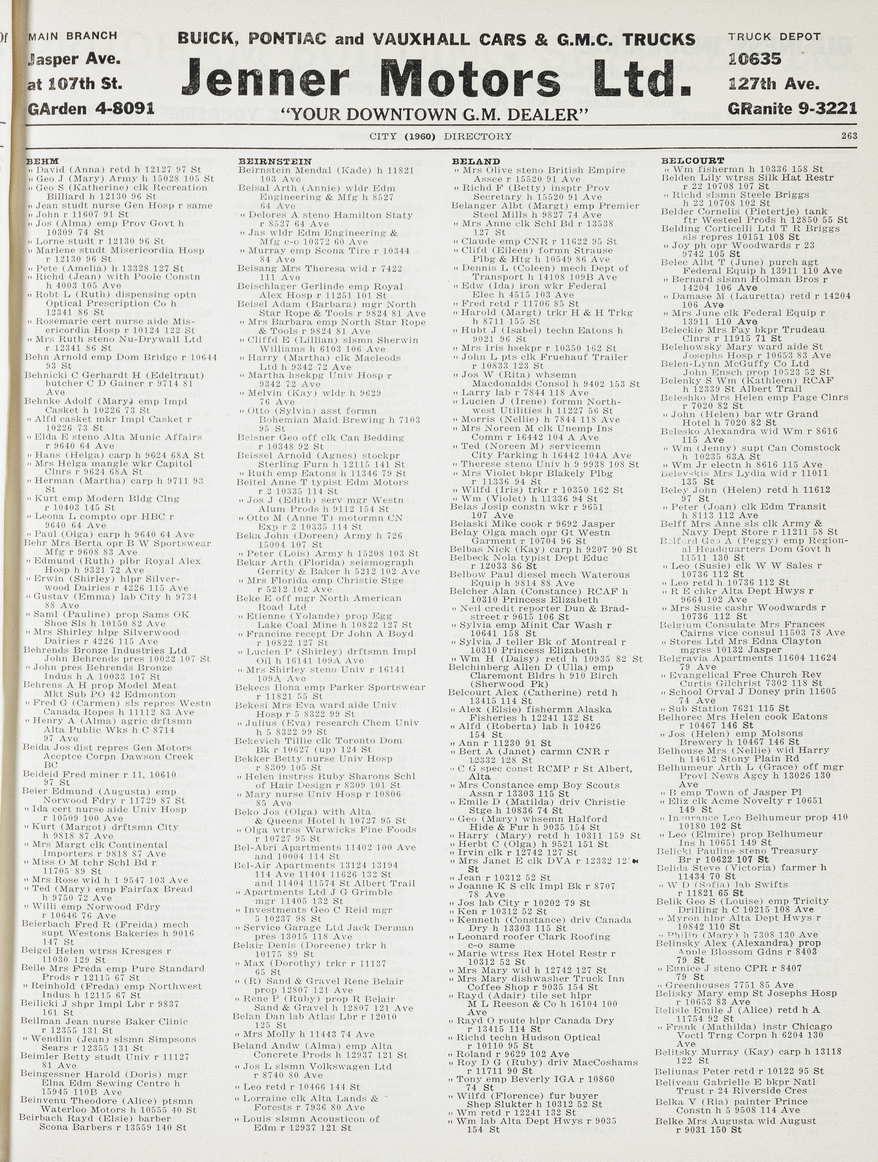 MAIN BRANCH
Jasper Ave.
at 107th St.
GArden 4-8091
BUICK, PONTIAC and VAUXHALL CARS & G.M.C. TRUCKS
Jenner Motors Ltd.
"YOUR DOWNTOWN G.M. DEALER"
TRUCK DEPOT
10635
127th Ave.
GRanite 9-3221
CITY (1960) DIRECTORY
263
BEHM
" David (Anna) retd h 12127 97 St
" Geo J (Mary) Army h 15028 105 St
" Geo S (Katherine) clk Recreation
Billiard h 12130 96 St
" Jean studt nurse Gen Hosp r same
" John r 11607 91 St
" Jos (Alma) emp Prov Govt h
10309 74 St
" Lorne studt r 12130 96 St
" Marlene studt Misericordia Hosp
r 12130 96 St
" Pete (Amelia) h 13328 127 St
" Richd (Jean) with Poole Constn
h 4003 105 Ave
" Robt L (Ruth) dispensing optn
Optical Prescription Co h
12341 86 St
" Rosemarie cert nurse aide Mis-
ericordia Hosp r 10124 122 St
" Mrs Ruth steno Nu-Drywall Ltd
r 12341 86 St
Behn Arnold emp Dom Bridge r 10644
93 St
Behnicki C Gerhardt H (Edeltraut)
butcher C D Gainer r 9714 81
Ave
Behnke Adolf (Mary) emp Impl
Casket h 10226 73 St
" Alfd casket mkr Impl Casket r
10226 73 St
" Elda E steno Alta Munic Affairs
r 9640 64 Ave
" Hans (Helga) carp h 9624 68A St
" Mrs Helga mangle wkr Capitol
Clnrs r 9624 68A St
" Herman (Martha) carp h 9711 93
St
" Kurt emp Modern Bldg Clng
r 10403 145 St
" Leona L compto opr HBC r
9640 64 Ave
" Paul (Olga) carp h 9640 64 Ave
Behr Mrs Berta opr B W Sportswear
Mfg r 9608 83 Ave
" Edmund (Ruth) plbr Royal Alex
Hosp h 9321 72 Ave
" Erwin (Shirley) hlpr Silver-
wood Dairies r 4226 115 Ave
" Gustav (Emma) lab City h 9734
88 Ave
" Saml (Pauline) prop Sams OK
Shoe Sls h 10150 82 Ave
" Mrs Shirley hlpr Silverwood
Dairies r 4226 115 Ave
Behrends Bronze Industries Ltd
John Behrends pres 10022 107 St
" John pres Behrends Bronze
Indus h A 10033 107 St
Behrens A H prop Model Meat
Mkt Sub PO 42 Edmonton
" Fred G (Carmen) sls repres Westn
Canada Ropes h 11112 83 Ave
" Henry A (Alma) agric drftsmn
Alta Public Wks h C 8714
97 Ave
Beida Jos dist repres Gen Motors
Accptce Corpn Dawson Creek
BC
Beideid Fred miner r 11, 10610
97 St
Beier Edmund (Augusta) emp
Norwood Fdry r 11729 87 St
" Ida cert nurse aide Univ Hosp
r 10509 100 Ave
" Kurt (Margot) drftsmn City
h 9818 87 Ave
" Mrs Margt clk Continental
Importers r 9818 87 Ave
" Miss O M tchr Schl Bd r
11705 89 St
" Mrs Rose wid h 1 9547 103 Ave
" Ted (Mary) emp Fairfax Bread
h 9750 72 Ave
" Willi emp Norwood Fdry
r 10646 76 Ave
Beierbach Fred R (Freida) mech
supt Westons Bakeries h 9016
147 St
Beigel Helen wtrss Kresges r
11030 129 St
Beile Mrs Freda emp Pure Standard
Prods r 12115 67 St
" Reinhold (Freda) emp Northwest
Indus h 12115 67 St
Beilicki J shpr Impl Lbr r 9837
161 St
Beilman Jean nurse Baker Clinic
r 12355 131 St
" Wendlin (Jean) slsmn Simpsons
Sears r 12355 131 St
Beimler Betty studt Univ r 11127
81 Ave
Beingessner Harold (Doris) mgr
Elna Edm Sewing Centre h
15945 110B Ave
Beinvenu Theodore (Alice) ptsmn
Waterloo Motors h 10555 40 St
Beirbach Rayd (Elsie) barber
Scona Barbers r 13559 140 St
BEIRNSTEIN
Beirnstein Mendal (Kade) h 11821
103 Ave
Beisal Arth (Annie) wldr Edm
Engineering & Mfg h 8527
64 Ave
" Delores A steno Hamilton Staty
r 8527 64 Ave
" Jas wldr Edm Engineering &
Mfg c-o 10372 60 Ave
" Murray emp Scona Tire r 10344
84 Ave
Beisang Mrs Theresa wid r 7422
111 Ave
Beischlager Gerlinde emp Royal
Alex Hosp r 11251 101 St
Beisel Adam (Barbara) mgr North
Star Rope & Tools r 9824 81 Ave
" Mrs Barbara emp North Star Rope
& Tools r 9824 81 Ave
" Cliffd E (Lillian) slsmn Sherwin
Williams h 6103 106 Ave
" Harry (Martha) clk Macleods
Ltd h 9342 72 Ave
" Martha hsekpg Univ Hosp r
9342 72 Ave
" Melvin (Kay) wldr h 9629
76 Ave
" Otto (Sylvia) asst formn
Bohemian Maid Brewing h 7103
95 St
Beisner Geo off clk Can Bedding
r 10348 92 St
Beissel Arnold (Agnes) stockpr
Sterling Furn h 12115 141 St
" Ruth emp Eatons h 11346 79 St
Beitel Anne T typist Edm Motors
r 2 10335 114 St
" Jos J (Edith) serv mgr Westn
Alum Prods h 9112 154 St
" Otto M (Anne T) motormn CN
Exp r 2 10335 114 St
Beka John (Doreen) Army h 726
15004 107 St
" Peter (Lois) Army h 15208 103 St
Bekar Arth (Florida) seismograph
Gerrity & Baker h 5212 102 Ave
" Mrs Florida emp Christie Stge
r 5212 102 Ave
Beke E off mgr North American
Road Ltd
" Etienne (Yolande) prop Egg
Lake Coal Mine h 10822 127 St
" Francine recept Dr John A Boyd
r 10822 127 St
" Lucien P (Shirley) drftsmn Impl
Oil h 16141 109A Ave
" Mrs Shirley steno Univ r 16141
109A Ave
Bekecs Ilona emp Parker Sportswear
r 11821 55 St
Bekesi Mrs Eva ward aide Univ
Hosp r 5 8322 99 St
" Julius (Eva) research Chem Univ
h 5 8322 99 St
Bekevich Tillie clk Toronto Dom
Bk r 10627 (up) 124 St
Bekker Betty nurse Univ Hosp
r 8309 105 St
" Helen instrss Ruby Sharons Schl
of Hair Design r 8309 101 St
" Mary nurse Univ Hosp r 10806
85 Ave
Beko Jos (Olga) with Alta
& Queens Hotel h 10727 95 St
" Olga wtrss Warwicks Fine Foods
r 10727 95 St
Bel-Abri Apartments 11402 100 Ave
and 10004 114 St
Bel-Air Apartments 13124 13194
114 Ave 11404 11626 132 St
and 11404 11574 St Albert Trail
" Apartments Ltd J G Grimble
mgr 11405 132 St
" Investments Geo C Reid mgr
5 10237 98 St
" Service Garage Ltd Jack Derman
pres 13015 118 Ave
Belair Denis (Doreene) trkr h
10175 89 St
" Max (Dorothy) trkr r 11137
65 St
" (R) Sand & Gravel Rene Belair
prop 12807 121 Ave
" Rene P (Ruby) prop R Belair
Sand & Gravel h 12807 121 Ave
Belan Dan lab Atlas Lbr r 12010
125 St
" Mrs Molly h 11443 74 Ave
Beland Andw (Alma) emp Alta
Concrete Prods h 12937 121 St
" Jos L slsmn Volkswagen Ltd
r 8740 80 Ave
" Leo retd r 10466 144 St
" Lorraine clk Alta Lands &
Forests r 7936 80 Ave
" Louis slsmn Acousticon of
Edm r 12937 121 St
BELAND
" Mrs Olive steno British Empire
Assce r 15520 91 Ave
" Richd F (Betty) insptr Prov
Secretary h 15520 91 Ave
Belanger Albt (Margt) emp Premier
Steel Mills h 9827 74 Ave
" Mrs Anne clk Schl Bd r 13538
127 St
" Claude emp CNR r 11622 95 St
" Clifd (Eileen) formn Strause
Plbg & Htg h 10549 86 Ave
" Dennis L (Coleen) mech Dept of
Transport h 14108 109B Ave
" Edw (Ida) iron wkr Federal
Elec h 4515 103 Ave
" Fred retd r 11706 85 St
" Harold (Margt) trkr H & H Trkg
h 8711 155 St
" Hubt J (Isabel) techn Eatons h
9021 96 St
" Mrs Iris hsekpr r 10350 162 St
" John L pts clk Fruehauf Trailer
r 10833 123 St
" Jos W (Rita) whsemn
Macdonalds Consol h 9402 153 St
" Larry lab r 7844 118 Ave
" Lucien J (Irene) formn North-
west Utilities h 11227 56 St
" Morris (Nellie) h 7844 118 Ave
" Mrs Noreen M clk Unemp Ins
Comm r 16442 104 A Ave
" Ted (Noreen M) servicemn
City Parking h 16442 104A Ave
" Therese steno Univ h 9 9938 108 St
" Mrs Violet hkpr Blakely Plbg
r 11336 94 St
" Wilfd (Iris) trkr r 10350 162 St
" Wm (Violet) h 11336 94 St
Belas Josip constn wkr r 9651
107 Ave
Belaski Mike cook r 9692 Jasper
Belay Olga mach opr Gt Westn
Garment r 10704 96 St
Belbas Nick (Kay) carp h 9207 90 St
Belbeck Nola typist Dept Educ
r 12033 86 St
Belbow Paul diesel mech Waterous
Equip h 9814 88 Ave
Belcher Alan (Constance) RCAF h
10310 Princess Elizabeth
" Neil credit reporter Dun & Brad-
street r 9615 106 St
" Sylvia emp Minit Car Wash r
10641 158 St
" Sylvia J teller Bk of Montreal r
10310 Princess Elizabeth
" Wm H (Daisy) retd h 10935 82 St
Belchinberg Allen D (Ulla) emp
Claremont Bldrs h 910 Birch
(Sherwood Pk)
Belcourt Alex (Catherine) retd h
13415 114 St
" Alex (Elsie) fishermn Alaska
Fisheries h 12241 132 St
" Alfd (Roberta) lab h 10426
154 St
" Ann r 11230 91 St
" Bert A (Janet) carmn CNR r
12332 128 St
" C G spec const RCMP r St Albert,
Alta
" Mrs Constance emp Boy Scouts
Assn r 13303 115 St
" Emile D (Matilda) driv Christie
Stge h 10836 74 St
" Geo (Mary) whsemn Halford
Hide & Fur h 9035 154 St
" Harry (Mary) retd h 10311 159 St
" Herbt C (Olga) h 9521 151 St
" Irvin clk r 12742 127 St
" Mrs Janet E clk DVA r 12332
St
" Jean r 10312 52 St
" Joanne K S clk Impl Bk r 8707
78 Ave
" Jos lab City r 10202 79 St
" Ken r 10312 52 St
" Kenneth (Constance) driv Canada
Dry h 13303 115 St
" Leonard roofer Clark Roofing
c-o same
" Marie wtrss Rex Hotel Restr r
10312 52 St
" Mrs Mary wid h 12742 127 St
" Mrs Mary dishwasher Truck Inn
Coffee Shop r 9035 154 St
" Rayd (Adair) tile set hlpr
M L Reeson & Co h 16104 100
Ave
" Rayd O route hlpr Canada Dry
r 13415 114 St
" Richd techn Hudson Optical
r 10110 95 St
" Roland r 9629 102 Ave
" Roy D G (Ruby) driv MacCoshams
r 11711 90 St
" Tony emp Beverly IGA r 10860
74 St
" Wilfd (Florence) fur buyer
Shep Slukter h 10312 52 St
" Wm retd r 12241 132 St
" Wm lab Alta Dept Hwys r 9035
154 St
BELCOURT
" Wm fishermn h 10336 158 St
Belden Lily wtrss Silk Hat Restr
r 22 10708 107 St
" Richd slsmn Steele Briggs
h 22 10708 102 St
Belder Cornelis (Pietertje) tank
ftr Westeel Prods h 12850 55 St
Belding Corticelli Ltd T R Briggs
sls repres 10151 108 St
" Joy ph opr Woodwards r 23
9742 105 St
Belec Albt T (June) purch agt
Federal Equip h 13911 110 Ave
" Bernard slsmn Holman Bros r
14204 106 Ave
" Damase M (Lauretta) retd r 14204
106 Ave
" Mrs June clk Federal Equip r
13911 110 Ave
Beleckie Mrs Fay bkpr Trudeau
Clnrs r 11915 71 St
Belehowsky Mary ward aide St
Josephs Hosp r 10653 83 Ave
Belen-Lynn McGuffy Co Ltd
John Ensch prop 10523 52 St
Belenky S Wm (Kathleen) RCAF
h 12339 St Albert Trail
Beleshko Mrs Helen emp Page Clnrs
r 7020 82 St
" John (Helen) bar wtr Grand
Hotel h 7020 82 St
Belesko Alexandra wid Wm r 8616
115 Ave
" Wm (Jenny) supt Can Comstock
h 10235 63A St
" Wm Jr electn h 8616 115 Ave
Mrs Lydia wid r 11011
135 St
Beley John (Helen) retd h 11612
97 St
" Peter (Joan) clk Edm Transit
h 8113 112 Ave
Belff Mrs Anne sls clk Army &
Navy Dept Store r 11211 58 St
Belford Geo A (Peggy) emp Region-
al Headquarters Dom Govt h
11511 130 St
" Leo (Susie) clk W W Sales r
10736 112 St
" Leo retd h 10736 112 St
" R E chkr Alta Dept Hwys r
9664 102 Ave
" Mrs Susie cashr Woodwards r
10736 112 St
Belgium Consulate Mrs Frances
Cairns vice consul 11503 78 Ave
" Stores Ltd Mrs Edna Clayton
mgrss 10132 Jasper
Belgravia Apartments 11604 11624
79 Ave
" Evangelical Free Church Rev
Curtis Gilchrist 7302 118 St
" School Orval J Doney prin 11605
74 Ave
" Sub Station 7621 115 St
Belhorec Mrs Helen cook Eatons
r 10467 146 St
" Jos (Helen) emp Molsons
Brewery h 10467 146 St
Belhouse Mrs (Nellie) wid Harry
h 14612 Stony Plain Rd
Belhumeur Arth L (Grace) off mgr
Provl News Agcy h 13026 130
Ave
" B emp Town of Jasper Pl
" Eliz clk Acme Novelty r 10651
149 St
" Insurance Leo Belhumeur prop 410
10180 102 St
" Leo (Elmire) prop Belhumeur
Ins h 10651 149 St
Belicki Pauline steno Treasury
Br r 10622 107 St
Belida Steve (Victoria) farmer h
11434 70 St
" W D (Sofia) lab Swifts
r 11821 65 St
Belik Geo S (Louise) emp Tricity
Drilling h C 10215 108 Ave
" Myron hlpr Alta Dept Hwys r
10842 110 St
" Philip (Mary) h 7308 130 Ave
Belinsky Alex (Alexandra) prop
Apple Blossom Gdns r 8403
79 St
" Eunice J steno CPR r 8407
79 St
" Greenhouses 7751 85 Ave
Belisky Mary emp St Josephs Hosp
r 10653 83 Ave
Belisle Emile J (Alice) retd h A
11754 92 St
" Frank (Mathilda) instr Chicago
Voctl Trng Corpn h 6204 130
Ave
Belitsky Murray (Kay) carp h 13118
122 St
Beliunas Peter retd r 10122 95 St
Beliveau Gabrielle E bkpr Natl
Trust r 24 Riverside Cres
Belka V (Ria) painter Prince
Constn h 5 9508 114 Ave
Belke Mrs Augusta wid August
r 9031 150 St